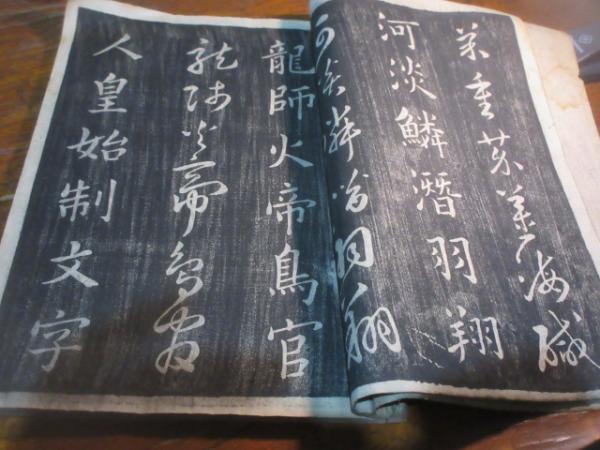 菜重芥薑海鹹
河淡鱗潛羽翔
河淡鱗潛羽翔
龍師火帝鳥官
龍師火帝鳥官
人皇始制文字